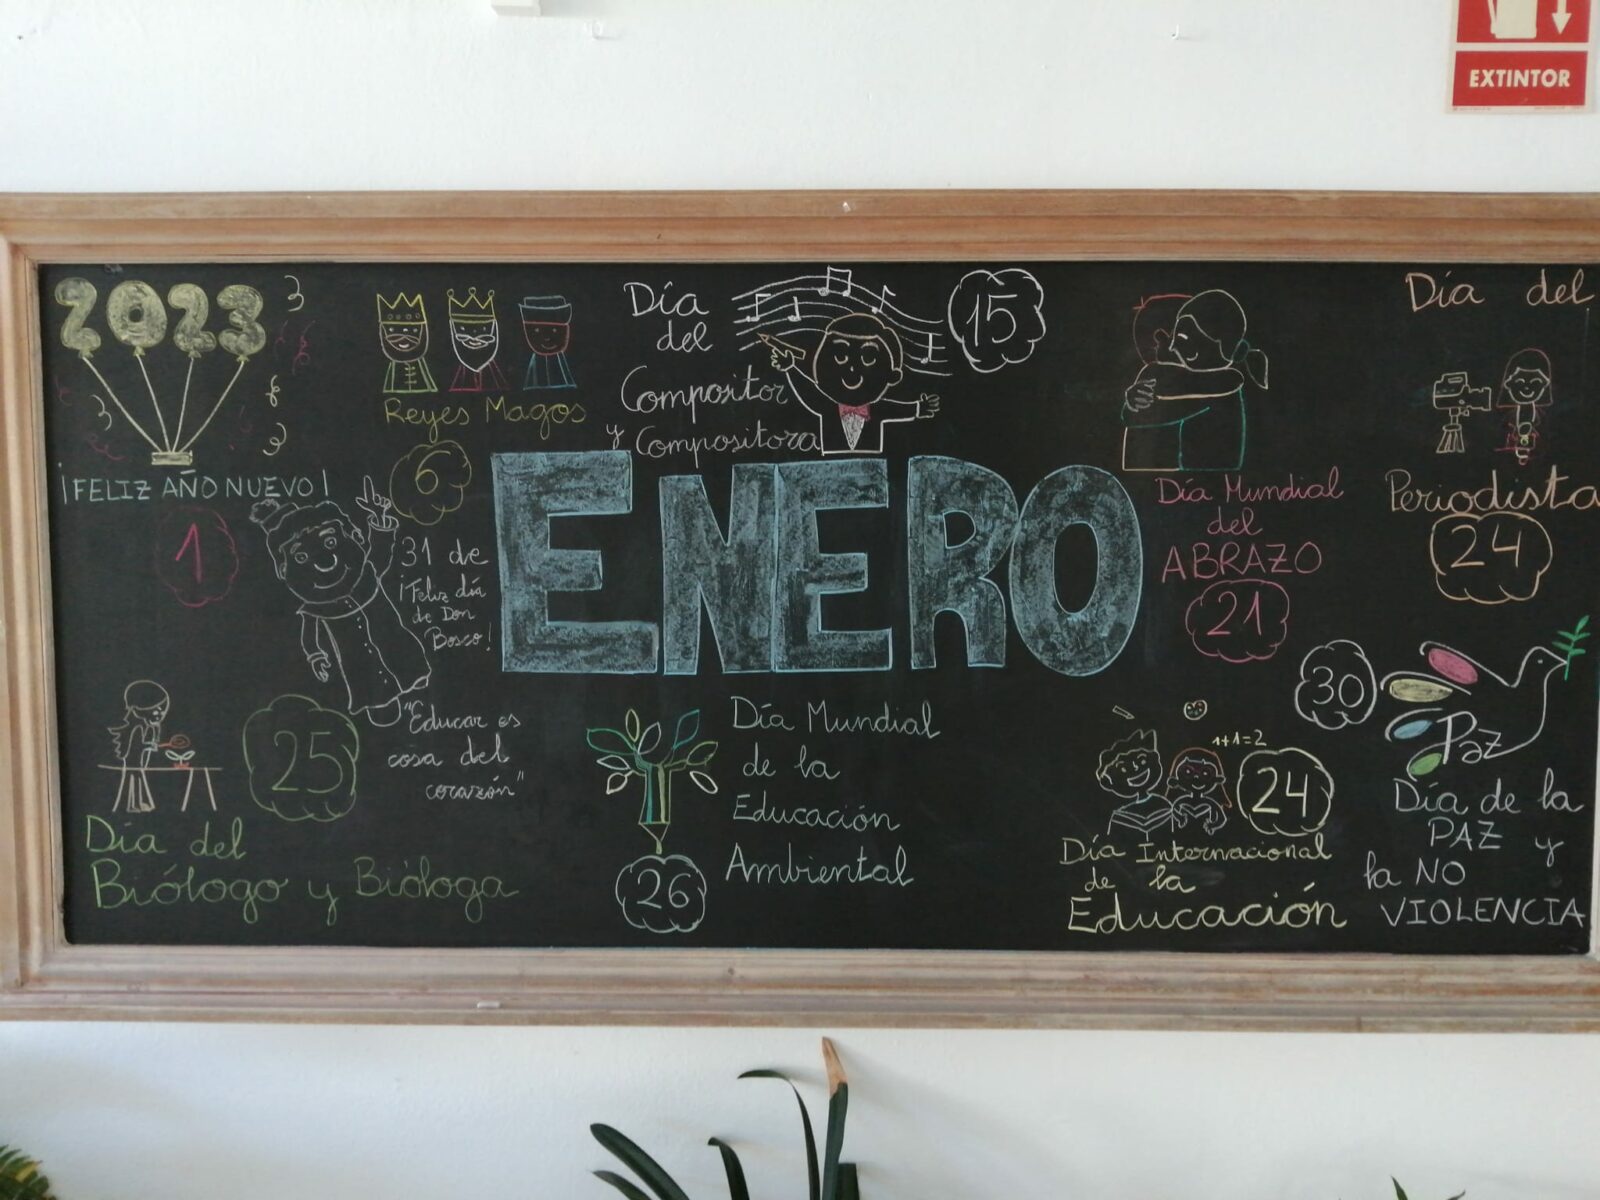 EXTINTOR
2023
¡FELIZ AÑO NUEVO!
1
Reyes Magos
6
Día
del
Compositor
y Compositora
15
Día Mundial
del
ABRAZO
21
Día del
Periodista
24
ENERO
31 de
¡Feliz día
de Don
Bosco!
"Educar es
cosa del
corazón"
25
Día del
Biólogo y Bióloga
Día Mundial
de la
Educación
Ambiental
26
1+1=2
24
Día Internacional
de la
Educación
30
Paz
Día de la
PAZ y
la NO
VIOLENCIA